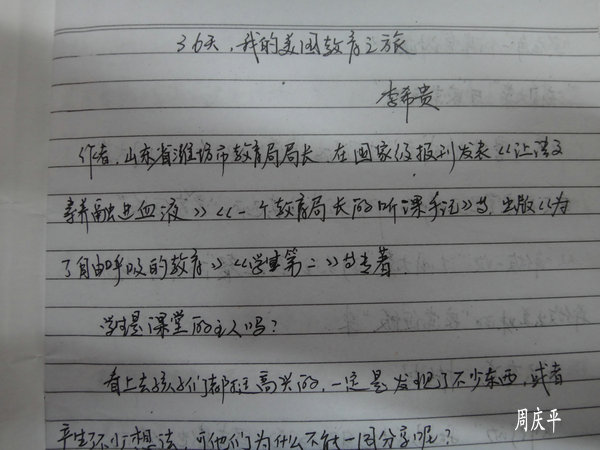 36天，我的美国教育之旅
李希贵
作者，山东省潍坊市教育局局长，在国家级报刊发表《让语文
素养融进血液》《一个教育局长的听课手记》等，出版《为
了自由呼吸的教育》《学生第二》等专著
学生是课堂的主人吗？
看上去孩子们都挺高兴的，一定是发现了不少东西，或者
产生了不少想法，可他们为什么不能一同分享呢？
周庆平